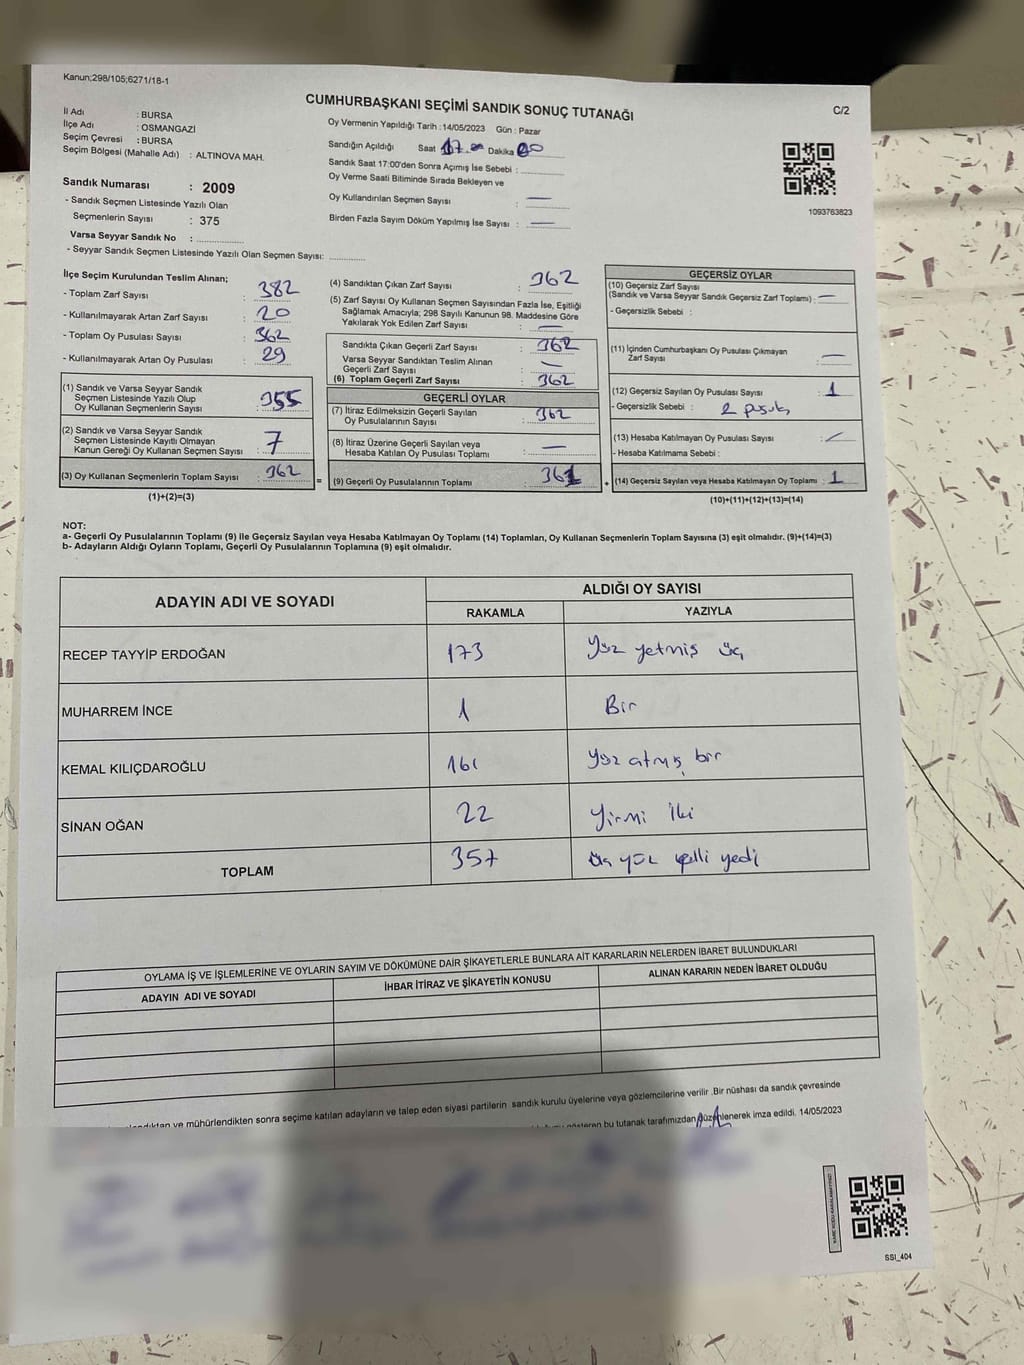 Kanun;298/105;6271/18-1
CUMHURBAŞKANI SEÇİMİ SANDIK SONUÇ TUTANAĞI
C/2
İl Adı : BURSA
İlçe Adı : OSMANGAZİ
Seçim Çevresi : BURSA
Seçim Bölgesi (Mahalle Adı) : ALTINOVA MAH.
Sandık Numarası : 2009
- Sandık Seçmen Listesinde Yazılı Olan
Seçmenlerin Sayısı : 375
Varsa Seyyar Sandık No : ................
- Seyyar Sandık Seçmen Listesinde Yazılı Olan Seçmen Sayısı: ............
Oy Vermenin Yapıldığı Tarih :14/05/2023 Gün : Pazar
Sandığın Açıldığı Saat 17.00 Dakika 00
Sandık Saat 17:00'den Sonra Açımış İse Sebebi : ............
Oy Verme Saati Bitiminde Sırada Bekleyen ve
Oy Kullandırılan Seçmen Sayısı : —
Birden Fazla Sayım Döküm Yapılmış İse Sayısı : —
1093763823
İlçe Seçim Kurulundan Teslim Alınan;
- Toplam Zarf Sayısı : 382
- Kullanılmayarak Artan Zarf Sayısı : 20
- Toplam Oy Pusulası Sayısı : 362
- Kullanılmayarak Artan Oy Pusulası : 29
(1) Sandık ve Varsa Seyyar Sandık
Seçmen Listesinde Yazılı Olup
Oy Kullanan Seçmenlerin Sayısı : 355
(2) Sandık ve Varsa Seyyar Sandık
Seçmen Listesinde Kayıtlı Olmayan
Kanun Gereği Oy Kullanan Seçmen Sayısı : 7
(3) Oy Kullanan Seçmenlerin Toplam Sayısı : 362
(1)+(2)=(3)
(4) Sandıktan Çıkan Zarf Sayısı : 362
(5) Zarf Sayısı Oy Kullanan Seçmen Sayısından Fazla İse, Eşitliği
Sağlamak Amacıyla; 298 Sayılı Kanunun 98. Maddesine Göre
Yakılarak Yok Edilen Zarf Sayısı : —
Sandıkta Çıkan Geçerli Zarf Sayısı : 362
Varsa Seyyar Sandıktan Teslim Alınan
Geçerli Zarf Sayısı : —
(6) Toplam Geçerli Zarf Sayısı : 362
GEÇERLİ OYLAR
(7) İtiraz Edilmeksizin Geçerli Sayılan
Oy Pusulalarının Sayısı : 362
(8) İtiraz Üzerine Geçerli Sayılan veya
Hesaba Katılan Oy Pusulası Toplamı : —
(9) Geçerli Oy Pusulalarının Toplamı : 361
GEÇERSİZ OYLAR
(10) Geçersiz Zarf Sayısı
(Sandık ve Varsa Seyyar Sandık Geçersiz Zarf Toplamı) : —
- Geçersizlik Sebebi :
(11) İçinden Cumhurbaşkanı Oy Pusulası Çıkmayan
Zarf Sayısı : —
(12) Geçersiz Sayılan Oy Pusulası Sayısı : 1
- Geçersizlik Sebebi : 2 pusula
(13) Hesaba Katılmayan Oy Pusulası Sayısı : —
- Hesaba Katılmama Sebebi :
(14) Geçersiz Sayılan veya Hesaba Katılmayan Oy Toplamı : 1
(10)+(11)+(12)+(13)=(14)
NOT:
a- Geçerli Oy Pusulalarının Toplamı (9) ile Geçersiz Sayılan veya Hesaba Katılmayan Oy Toplamı (14) Toplamları, Oy Kullanan Seçmenlerin Toplam Sayısına (3) eşit olmalıdır. (9)+(14)=(3)
b- Adayların Aldığı Oyların Toplamı, Geçerli Oy Pusulalarının Toplamına (9) eşit olmalıdır.
ADAYIN ADI VE SOYADI
ALDIĞI OY SAYISI
RAKAMLA YAZIYLA
RECEP TAYYİP ERDOĞAN 173 Yüz yetmiş üç
MUHARREM İNCE 1 Bir
KEMAL KILIÇDAROĞLU 161 Yüz atmış bir
SİNAN OĞAN 22 Yirmi iki
TOPLAM 357 üç yüz elli yedi
OYLAMA İŞ VE İŞLEMLERİNE VE OYLARIN SAYIM VE DÖKÜMÜNE DAİR ŞİKAYETLERLE BUNLARA AİT KARARLARIN NELERDEN İBARET BULUNDUKLARI
ADAYIN ADI VE SOYADI İHBAR İTİRAZ VE ŞİKAYETİN KONUSU ALINAN KARARIN NEDEN İBARET OLDUĞU
ve mühürlendikten sonra seçime katılan adayların ve talep eden siyasi partilerin sandık kurulu üyelerine veya gözlemcilerine verilir .Bir nüshası da sandık çevresinde
bu tutanak tarafımızdan düzenlenerek imza edildi. 14/05/2023
SSI_404